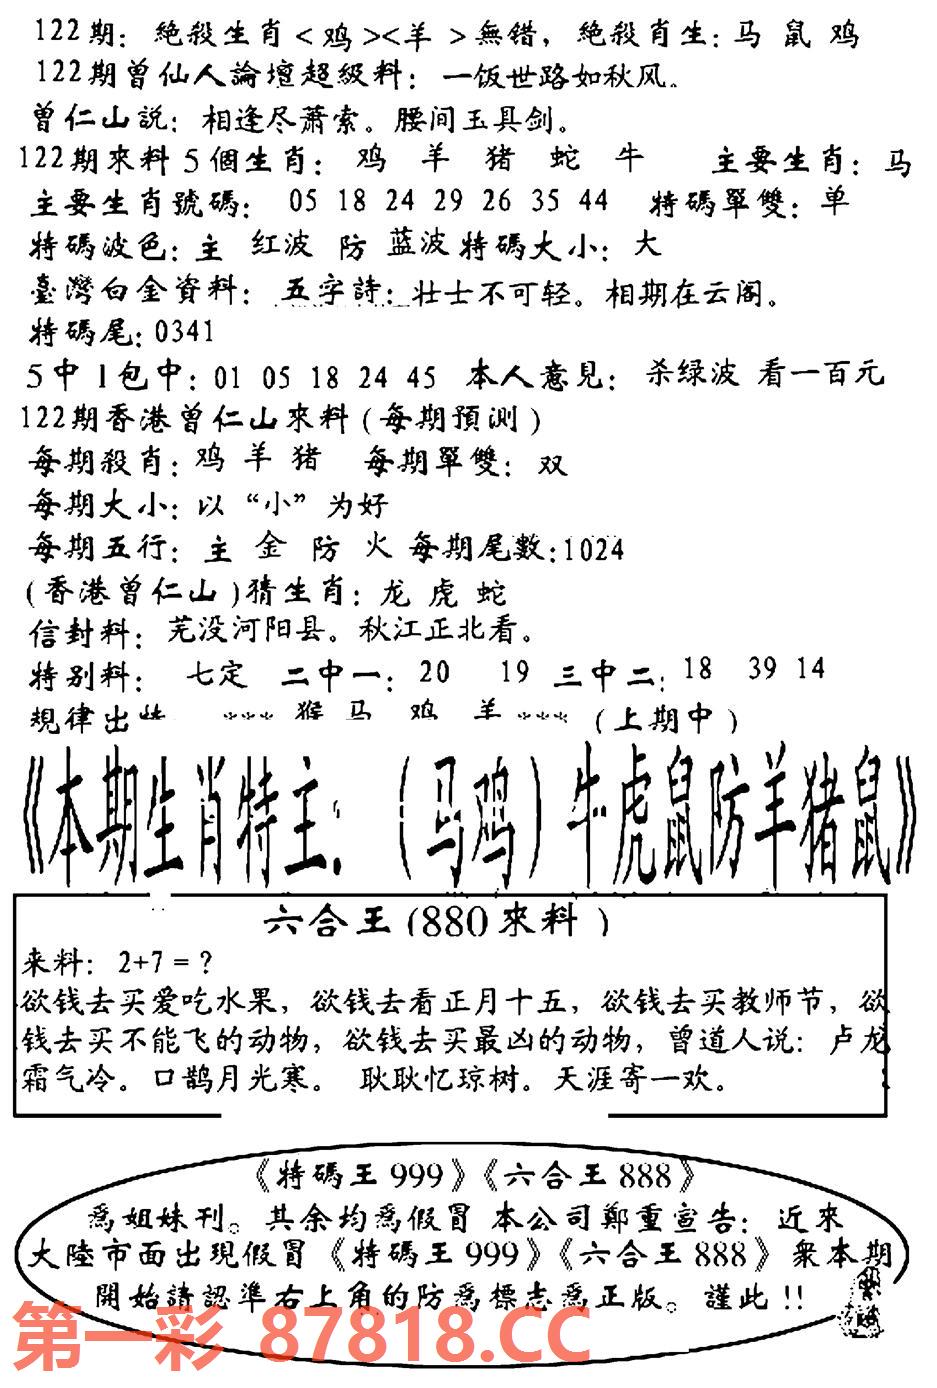 122期: 絶殺生肖<鸡><羊 >無错, 絶殺肖生:马 鼠 鸡
122期曾仙人論壇超級料: 一饭世路如秋风。
曾仁山説: 相逢尽萧索。腰间玉具剑。
122期來料5個生肖: 鸡 羊 猪 蛇 牛 主要生肖: 马
主要生肖號碼: 05 18 24 29 26 35 44 特碼單雙: 单
特碼波色: 主 红波 防 蓝波 特碼大小: 大
臺灣白金資料: 五字詩: 壮士不可轻。相期在云阁。
特碼尾: 0341
5中1包中: 01 05 18 24 45 本人意見: 杀绿波 看一百元
122期香港曾仁山來料(每期預测)
每期殺肖: 鸡 羊 猪 每期單雙: 双
每期大小: 以“小”为好
每期五行: 主 金 防 火 每期尾數:1024
(香港曾仁山)猜生肖: 龙 虎 蛇
信封料: 芜没河阳县。秋江正北看。
特别料: 七定 二中一: 20 19 三中二: 18 39 14
規律出特: *** 猴 马 鸡 羊 *** (上期中)
《本期生肖特主: (马鸡)牛虎鼠防羊猪鼠》
六合王(880來料)
来料: 2+7=?
欲钱去买爱吃水果, 欲钱去看正月十五, 欲钱去买教师节, 欲
钱去买不能飞的动物, 欲钱去买最凶的动物, 曾道人说: 卢龙
霜气冷。口鹊月光寒。 耿耿忆琼树。天涯寄一欢。
《特碼王999》《六合王888》
爲姐妹刊。其余均爲假冒 本公司鄭重宣告: 近來
大陸市面出現假冒《特碼王999》《六合王888》衆本期
開始請認準右上角的防爲標志爲正版。謹此!!
第一彩 87818.CC